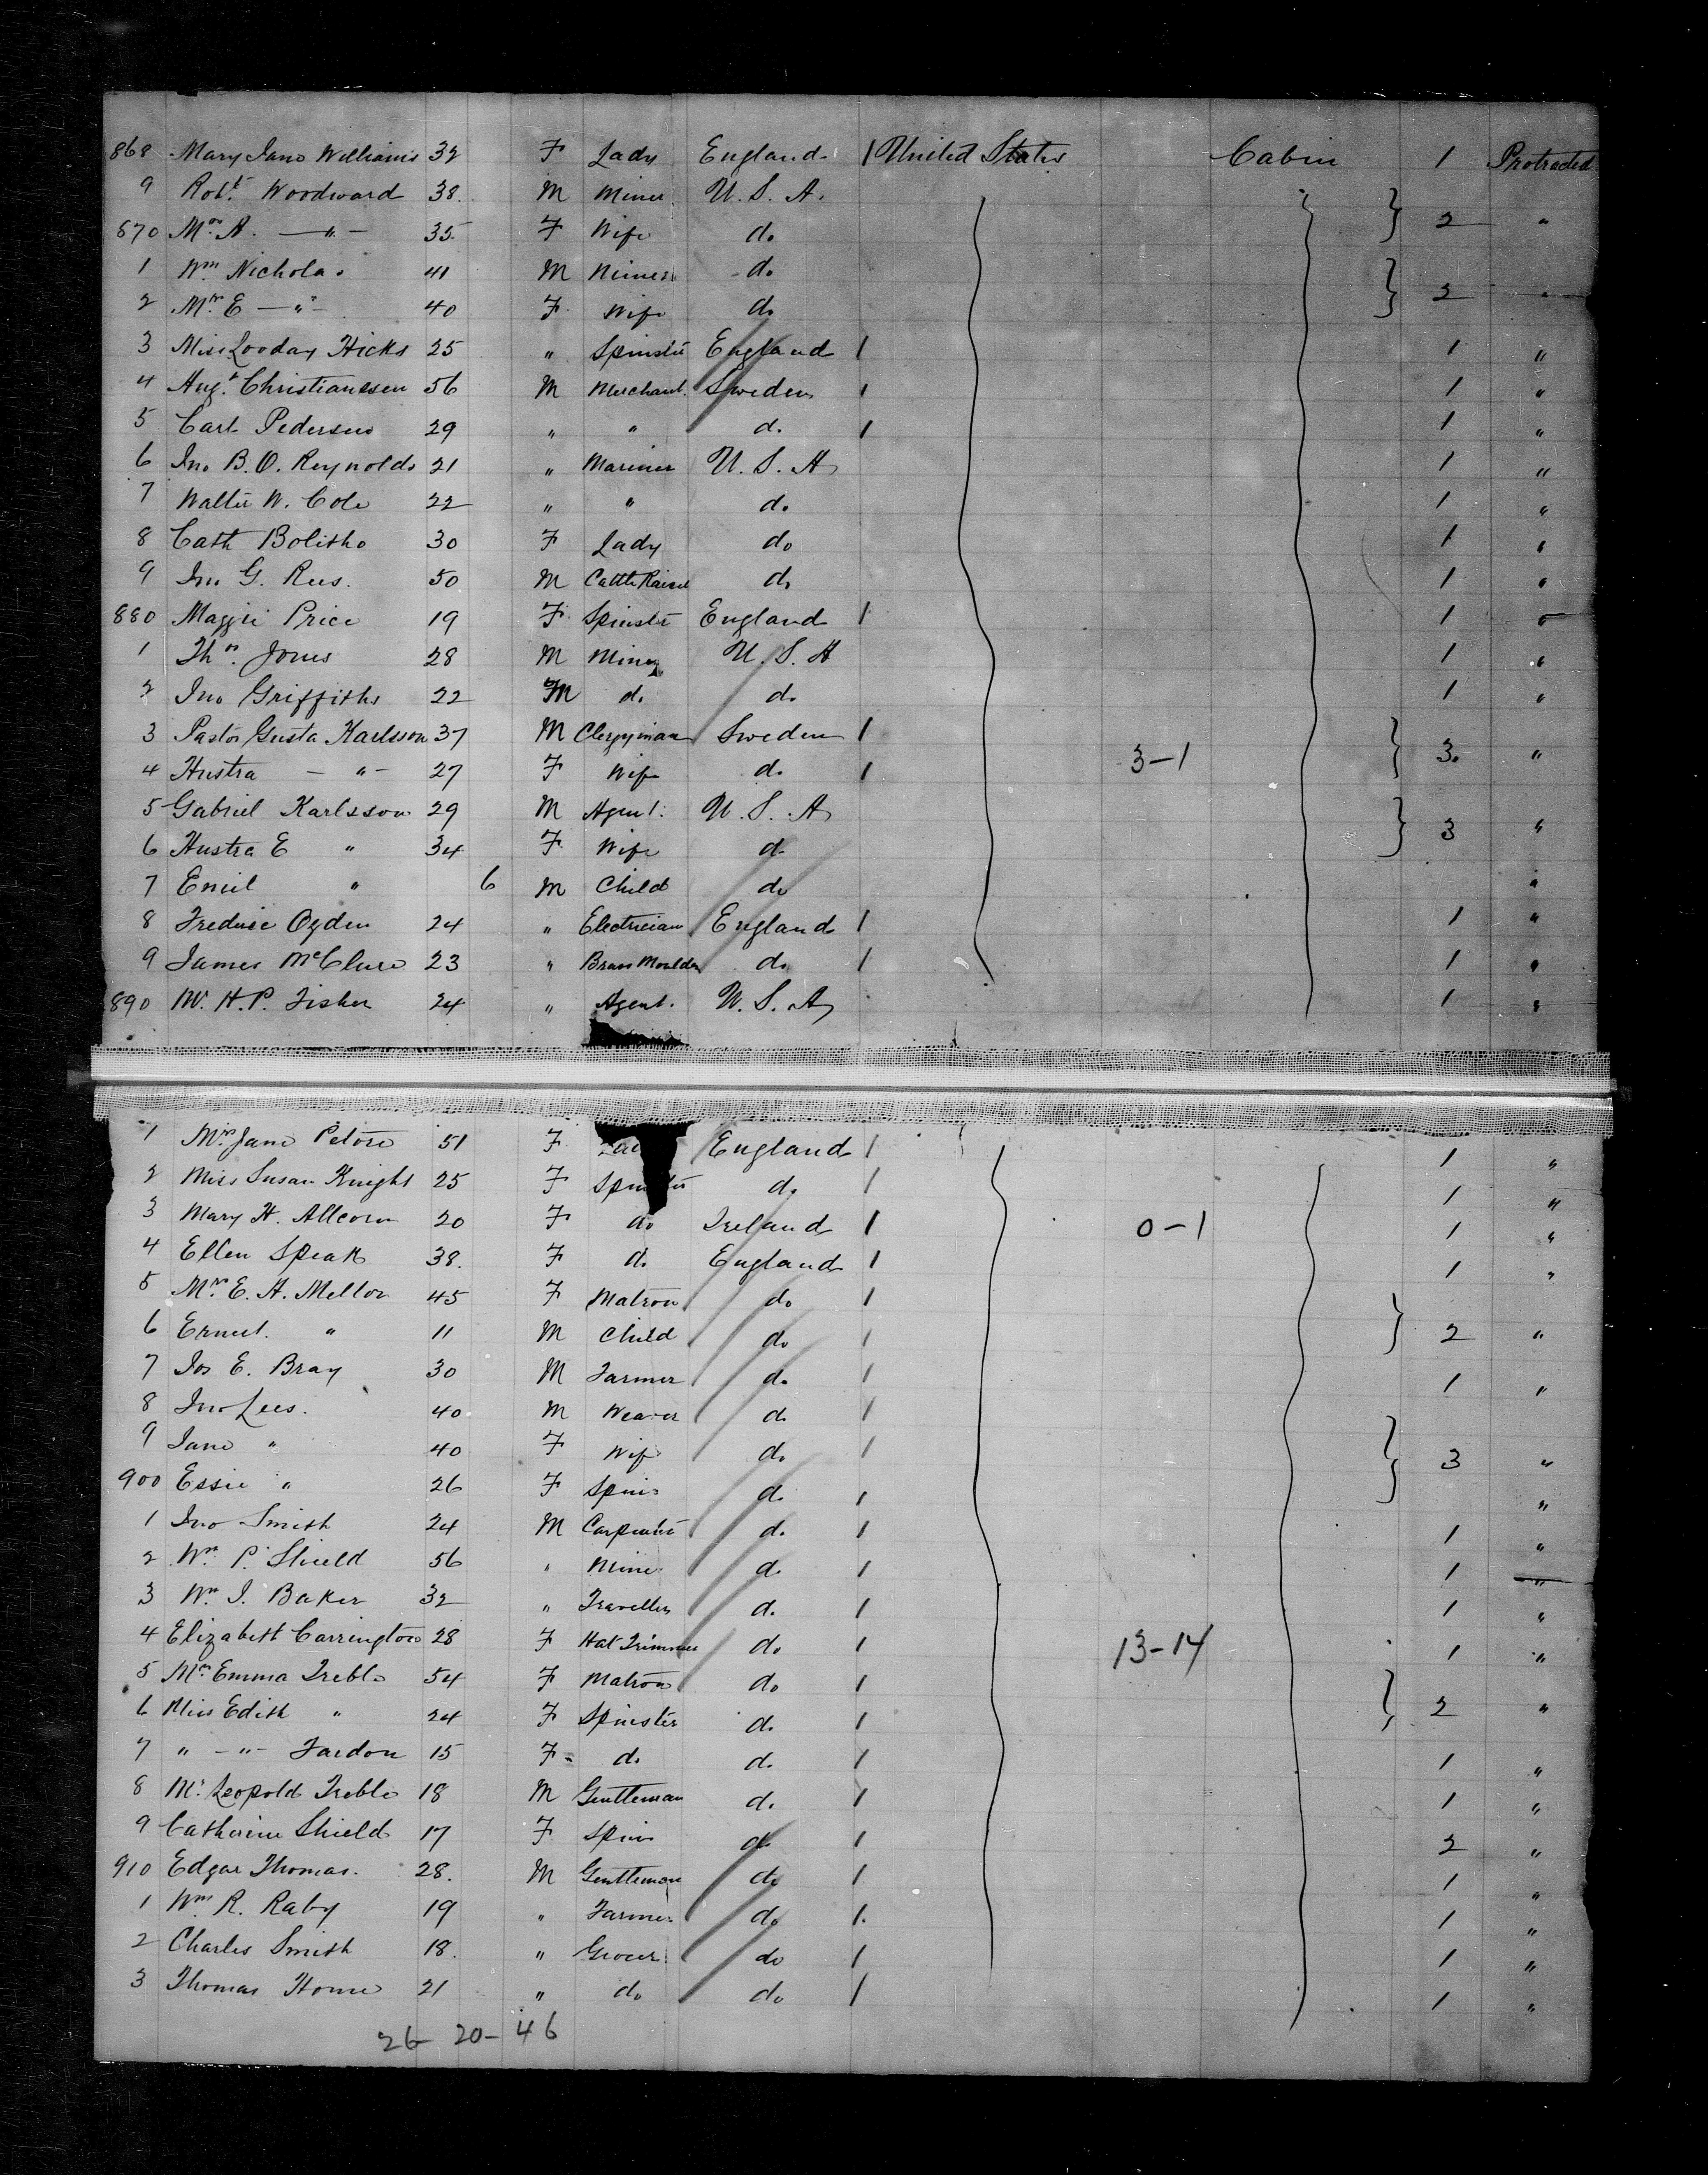 868 Mary Jane Williams 32 F Lady England 1 United States Cabin 1 Protracted
9 Robt. Woodward 38. M Miner U. S. A.
870 Mrs A. — " — 35 F Wife do } 2 "
1 Wm Nicholas 41 M Miner do
2 Mrs E — " — 40 F Wife do } 2 "
3 Miss Looday Hicks 25 " Spinster England 1 1 "
4 Augt. Christianssen 56 M Merchant. Sweden 1 1 "
5 Carl Pedersen 29 " " do 1 1 "
6 Jno B. O. Reynolds 21 " Mariner U. S. A 1 "
7 Walter W. Cole 22 " " do 1 "
8 Cath Bolitho 30 F Lady do 1 "
9 Jno G. Rees. 50 M Cattle Raiser do 1 "
880 Maggie Price 19 F Spinster England 1 1 "
1 Thos. Jones 28 M Miner U. S. A 1 "
2 Jno Griffiths 22 M do do 1 "
3 Pastor Gusta Karlsson 37 M Clergyman Sweden 1
4 Hustra — " — 27 F Wife do 1 3-1 } 3. "
5 Gabriel Karlsson 29 M Agent. U. S. A
6 Hustra E " 34 F Wife do } 3 "
7 Emil " 6 M Child do "
8 Frederic Ogden 24 " Electrician England 1 1 "
9 James McClure 23 " Brass Moulder do 1 1 "
890 W. H. P. Fisher 24 " Agent. U. S. A 1 "
1 Mrs Jane 51 F England 1 1 "
2 Miss Susan Knight 25 F Spinster do 1 1 "
3 Mary H. Allcorn 20 F do Ireland 1 0-1 1 "
4 Ellen Speak 38. F do England 1 1 "
5 Mrs E. H. Mellor 45 F Matron do 1
6 Ernest. " 11 M Child do 1 } 2 "
7 Jos E. Bray 30 M Farmer do 1 1 "
8 Jno Lees. 40 M Weaver do 1
9 Jane " 40 F Wife do 1 } 3 "
900 Essie " 26 F Spins do 1 "
1 Jno Smith 24 M Carpenter do 1 1 "
2 Wm P. Shield 56 " Miner do 1 1 "
3 Wm J. Baker 32 " Traveller do 1 1 "
4 Elizabeth Carrington 28 F Hat Trimmer do 1 13-14 1 "
5 Mrs Emma Treble 54 F Matron do 1
6 Miss Edith " 24 F Spinster do 1 } 2 "
7 " — " — Fardon 15 F do do 1 1 "
8 Mr Leopold Treble 18 M Gentleman do 1 1 "
9 Catherine Shield 17 F Spins do 1 2 "
910 Edgar Thomas. 28. M Gentleman do 1 1 "
1 Wm R. Raby 19 " Farmer do 1. 1 "
2 Charles Smith 18. " Grocer do 1 1 "
3 Thomas Horne 21 " do do 1 1 "
26 - 20 - 46